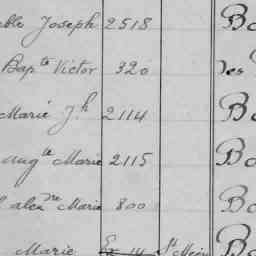 Joseph 2518 Bo
Bap^te Victor 320 Des
Marie J.^h 2114 Bo
Aug^te Marie 2115 Bo
alex^dre Marie 800 Bo
Marie St Bo